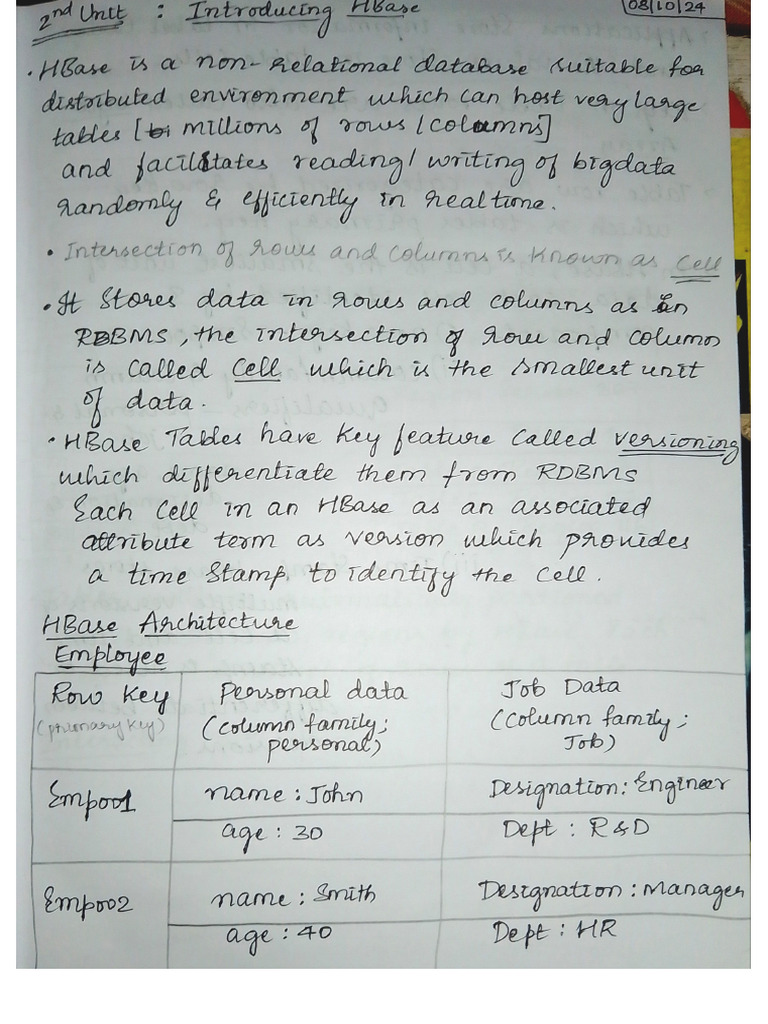 2nd Unit : Introducing HBase
08/10/24
• HBase is a non-relational database suitable for
distributed environment which can host very large
tables [ millions of rows / columns]
and facilitates reading/ writing of bigdata
randomly & efficiently in realtime.
• Intersection of rows and columns is known as Cell
• It stores data in rows and columns as in
RDBMS, the intersection of row and column
is called Cell which is the smallest unit
of data.
• HBase Tables have key feature called versioning
which differentiate them from RDBMS
Each cell in an HBase as an associated
attribute term as version which provides
a time stamp to identify the cell.
HBase Architecture
Employee
Row Key
(primary key)
Personal data
(column family;
personal)
Job Data
(column family;
Job)
Emp001
name : John
Designation: Engineer
age : 30
Dept : R&D
Emp002
name : Smith
Designation : Manager
age : 40
Dept : HR